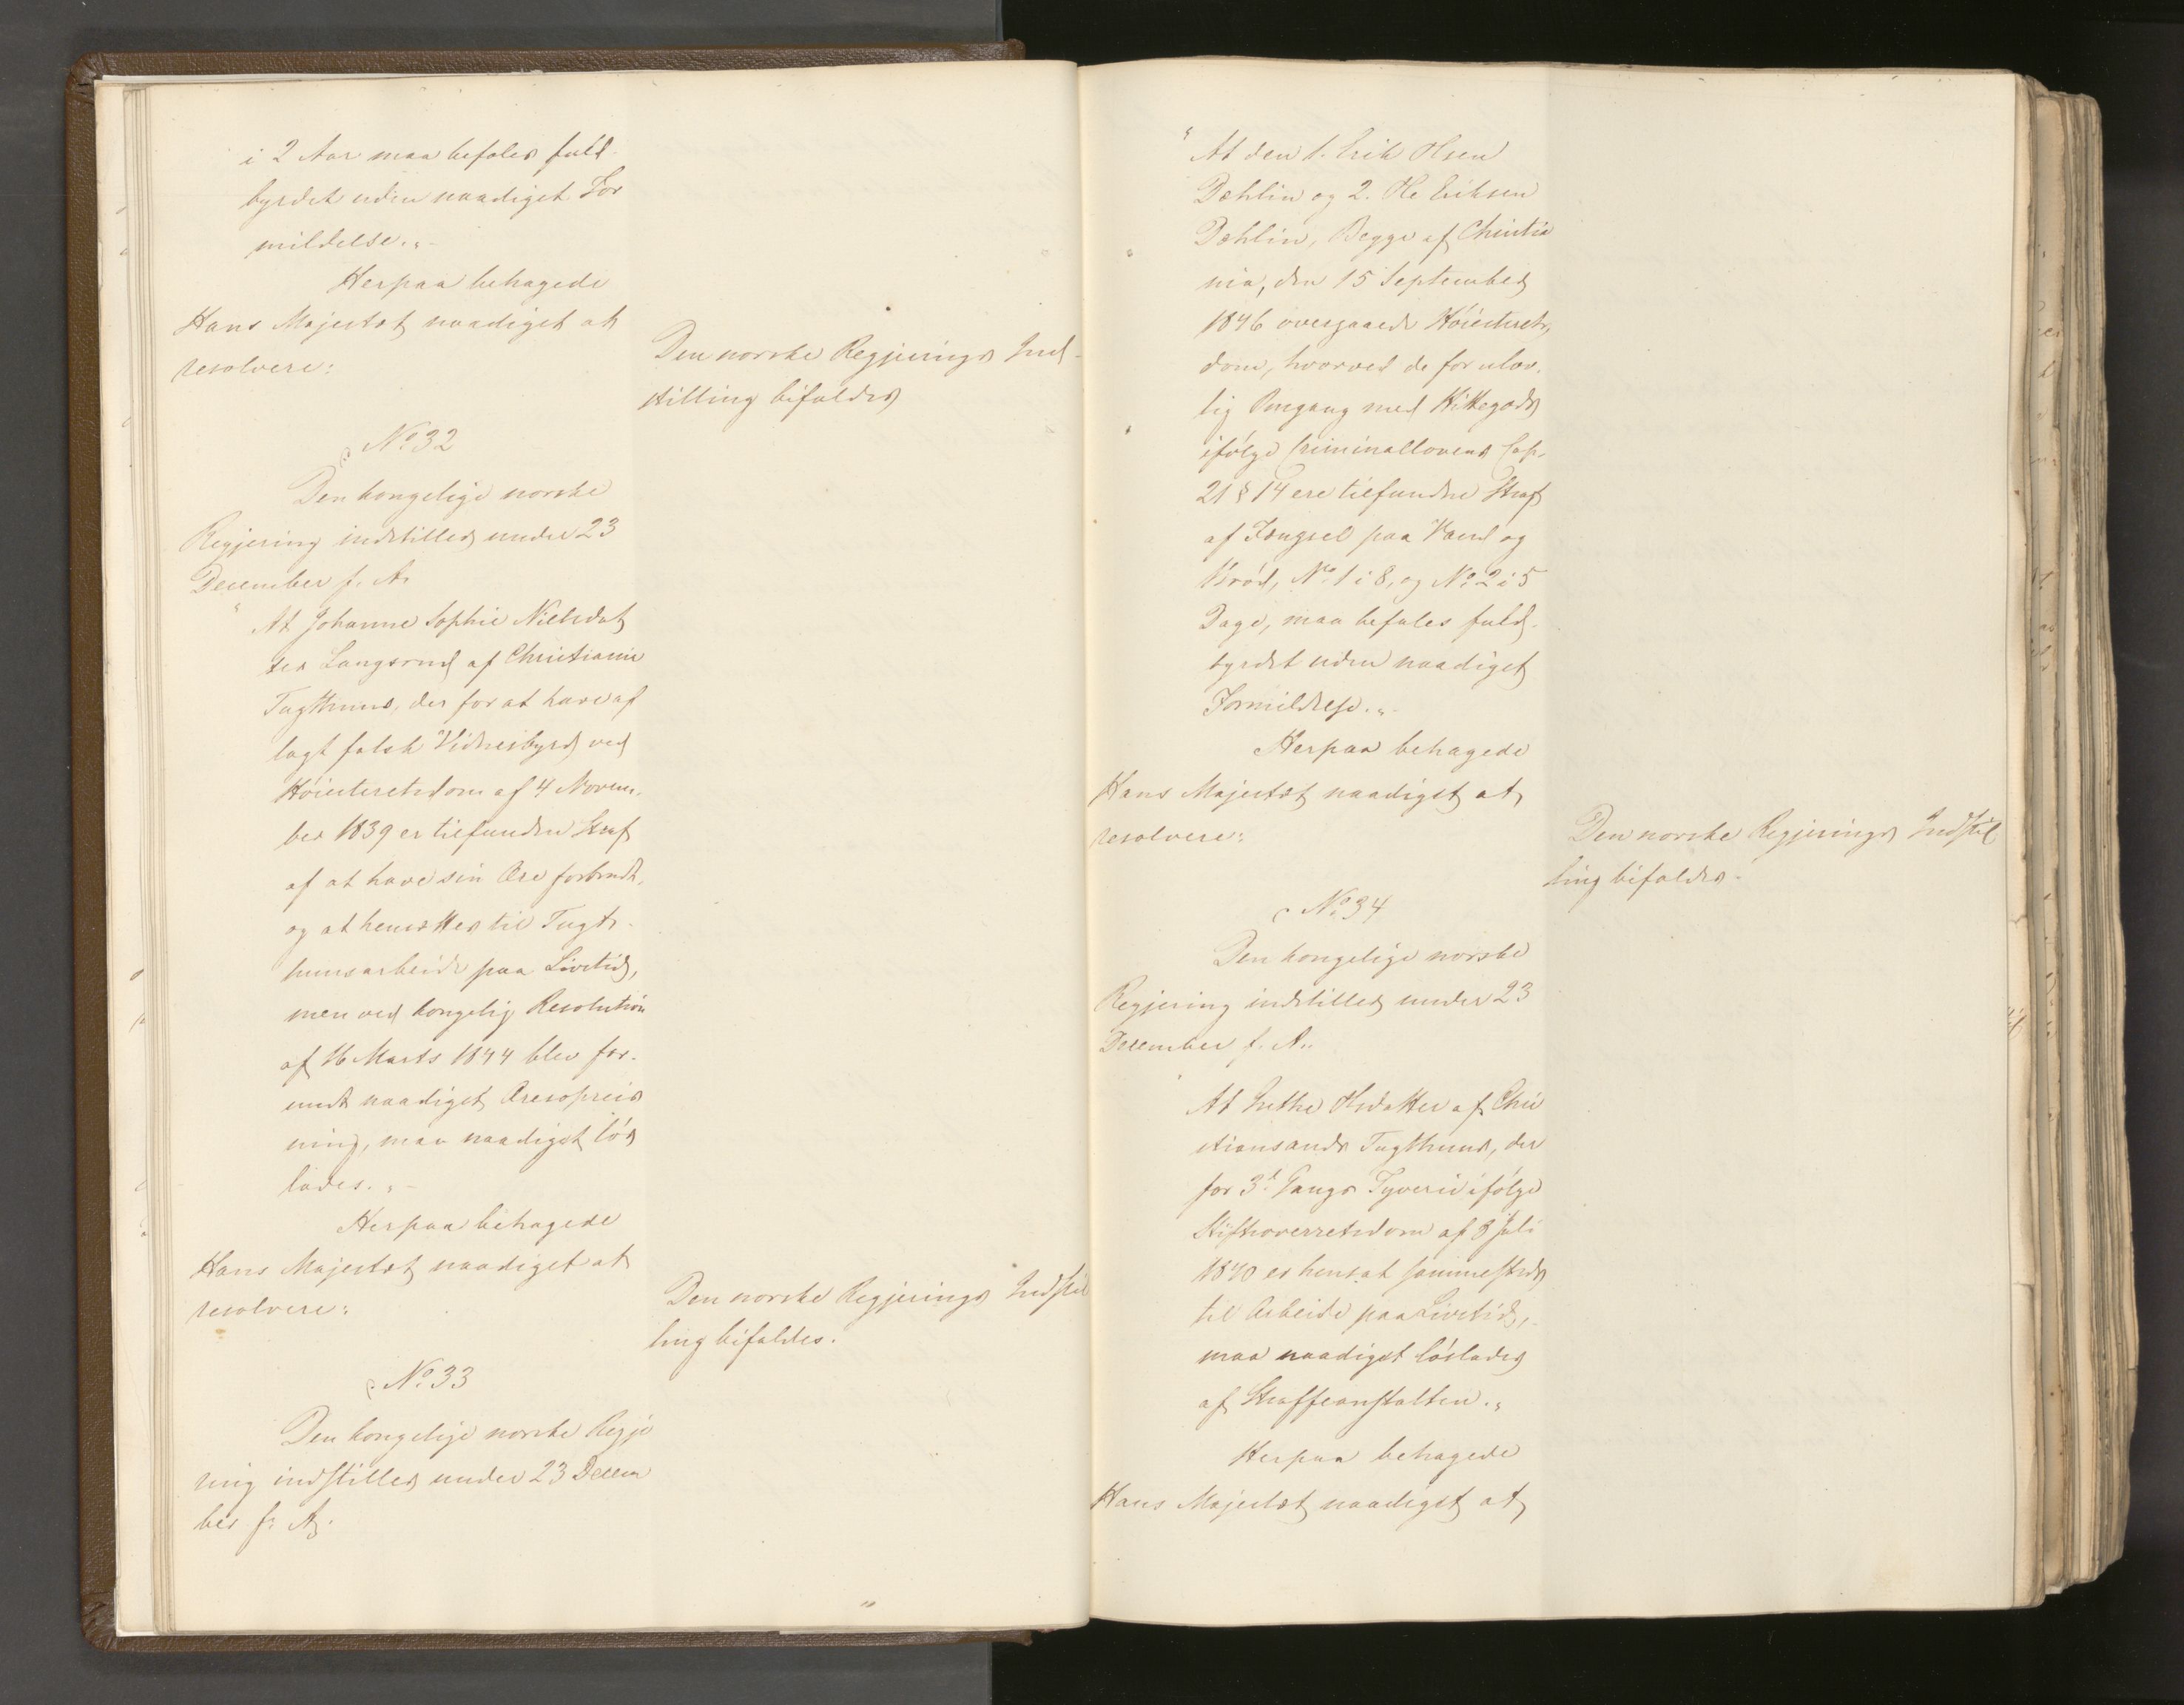 i 2 Aar maa befales fuld-
byrdet uden naadigst For
mildelse.„-
Herpaa behagede
Hans Majestæt naadigst at
resolvere:
Den norske Regjerings Ind-
stilling bifaldes
No 32
Den kongelige norske
Regjering indstilles under 23
December f. A.
"At Johanne Sophie Nielsdat
ter Langsrud af Christiania
Tugthuus, der for at have af
lagt falsk Vidnesbyrd ved
Høiesteretsdom af 4 Novem-
ber 1839 er tilfunden Straf
af at have sin Ære forbrudt,
og at hensættes til Tugt-
huusarbeide paa Livstid,
men ved kongelig Resolution
af 16 Marts 1844 blev for-
undt naadigst Æresopreis
ning, maa naadigst løs
lades.„-
Herpaa behagede
Hans Majestæt naadigst at
resolvere:
Den norske Regjerings Indstil
ling bifaldes.
No 33
Den kongelige norske Regje
ring indstilles under 23 Decem
ber f. A.
"At den 1. Erik Olsen
Dæhlin og 2. Ole Eriksen
Dæhlin, Begge af Christia
nia, den 15 September
1846 overgaaede Høiesterets
dom, hvorved de for ulov-
lig Omgang med Hittegods
ifølge Criminallovens Cap.
21 § 14 ere tilfundne Straf
af Fængsel paa Vand og
Brød, No 1 i 8, og No 2 i 5
Dage, maa befales fuld-
byrdet uden naadigst
Formildelse.„-
Herpaa behagede
Hans Majestæt naadigst at
resolvere:
Den norske Regjerings Indstil
ling bifaldes.
No 34
Den kongelige norske
Regjering indstilles under 23
December f. A.
"At Grethe Olsdatter af Chri
stiansands Tugthuus, der
for 3d Gangs Tyverie ifølge
Stiftsoverretsdom af 8 Juli
1840 er hensat sammesteds
til Arbeide paa Livstid,
maa naadigst løslades
af Straffeanstalten.„
Herpaa behagede
Hans Majestæt naadigst at